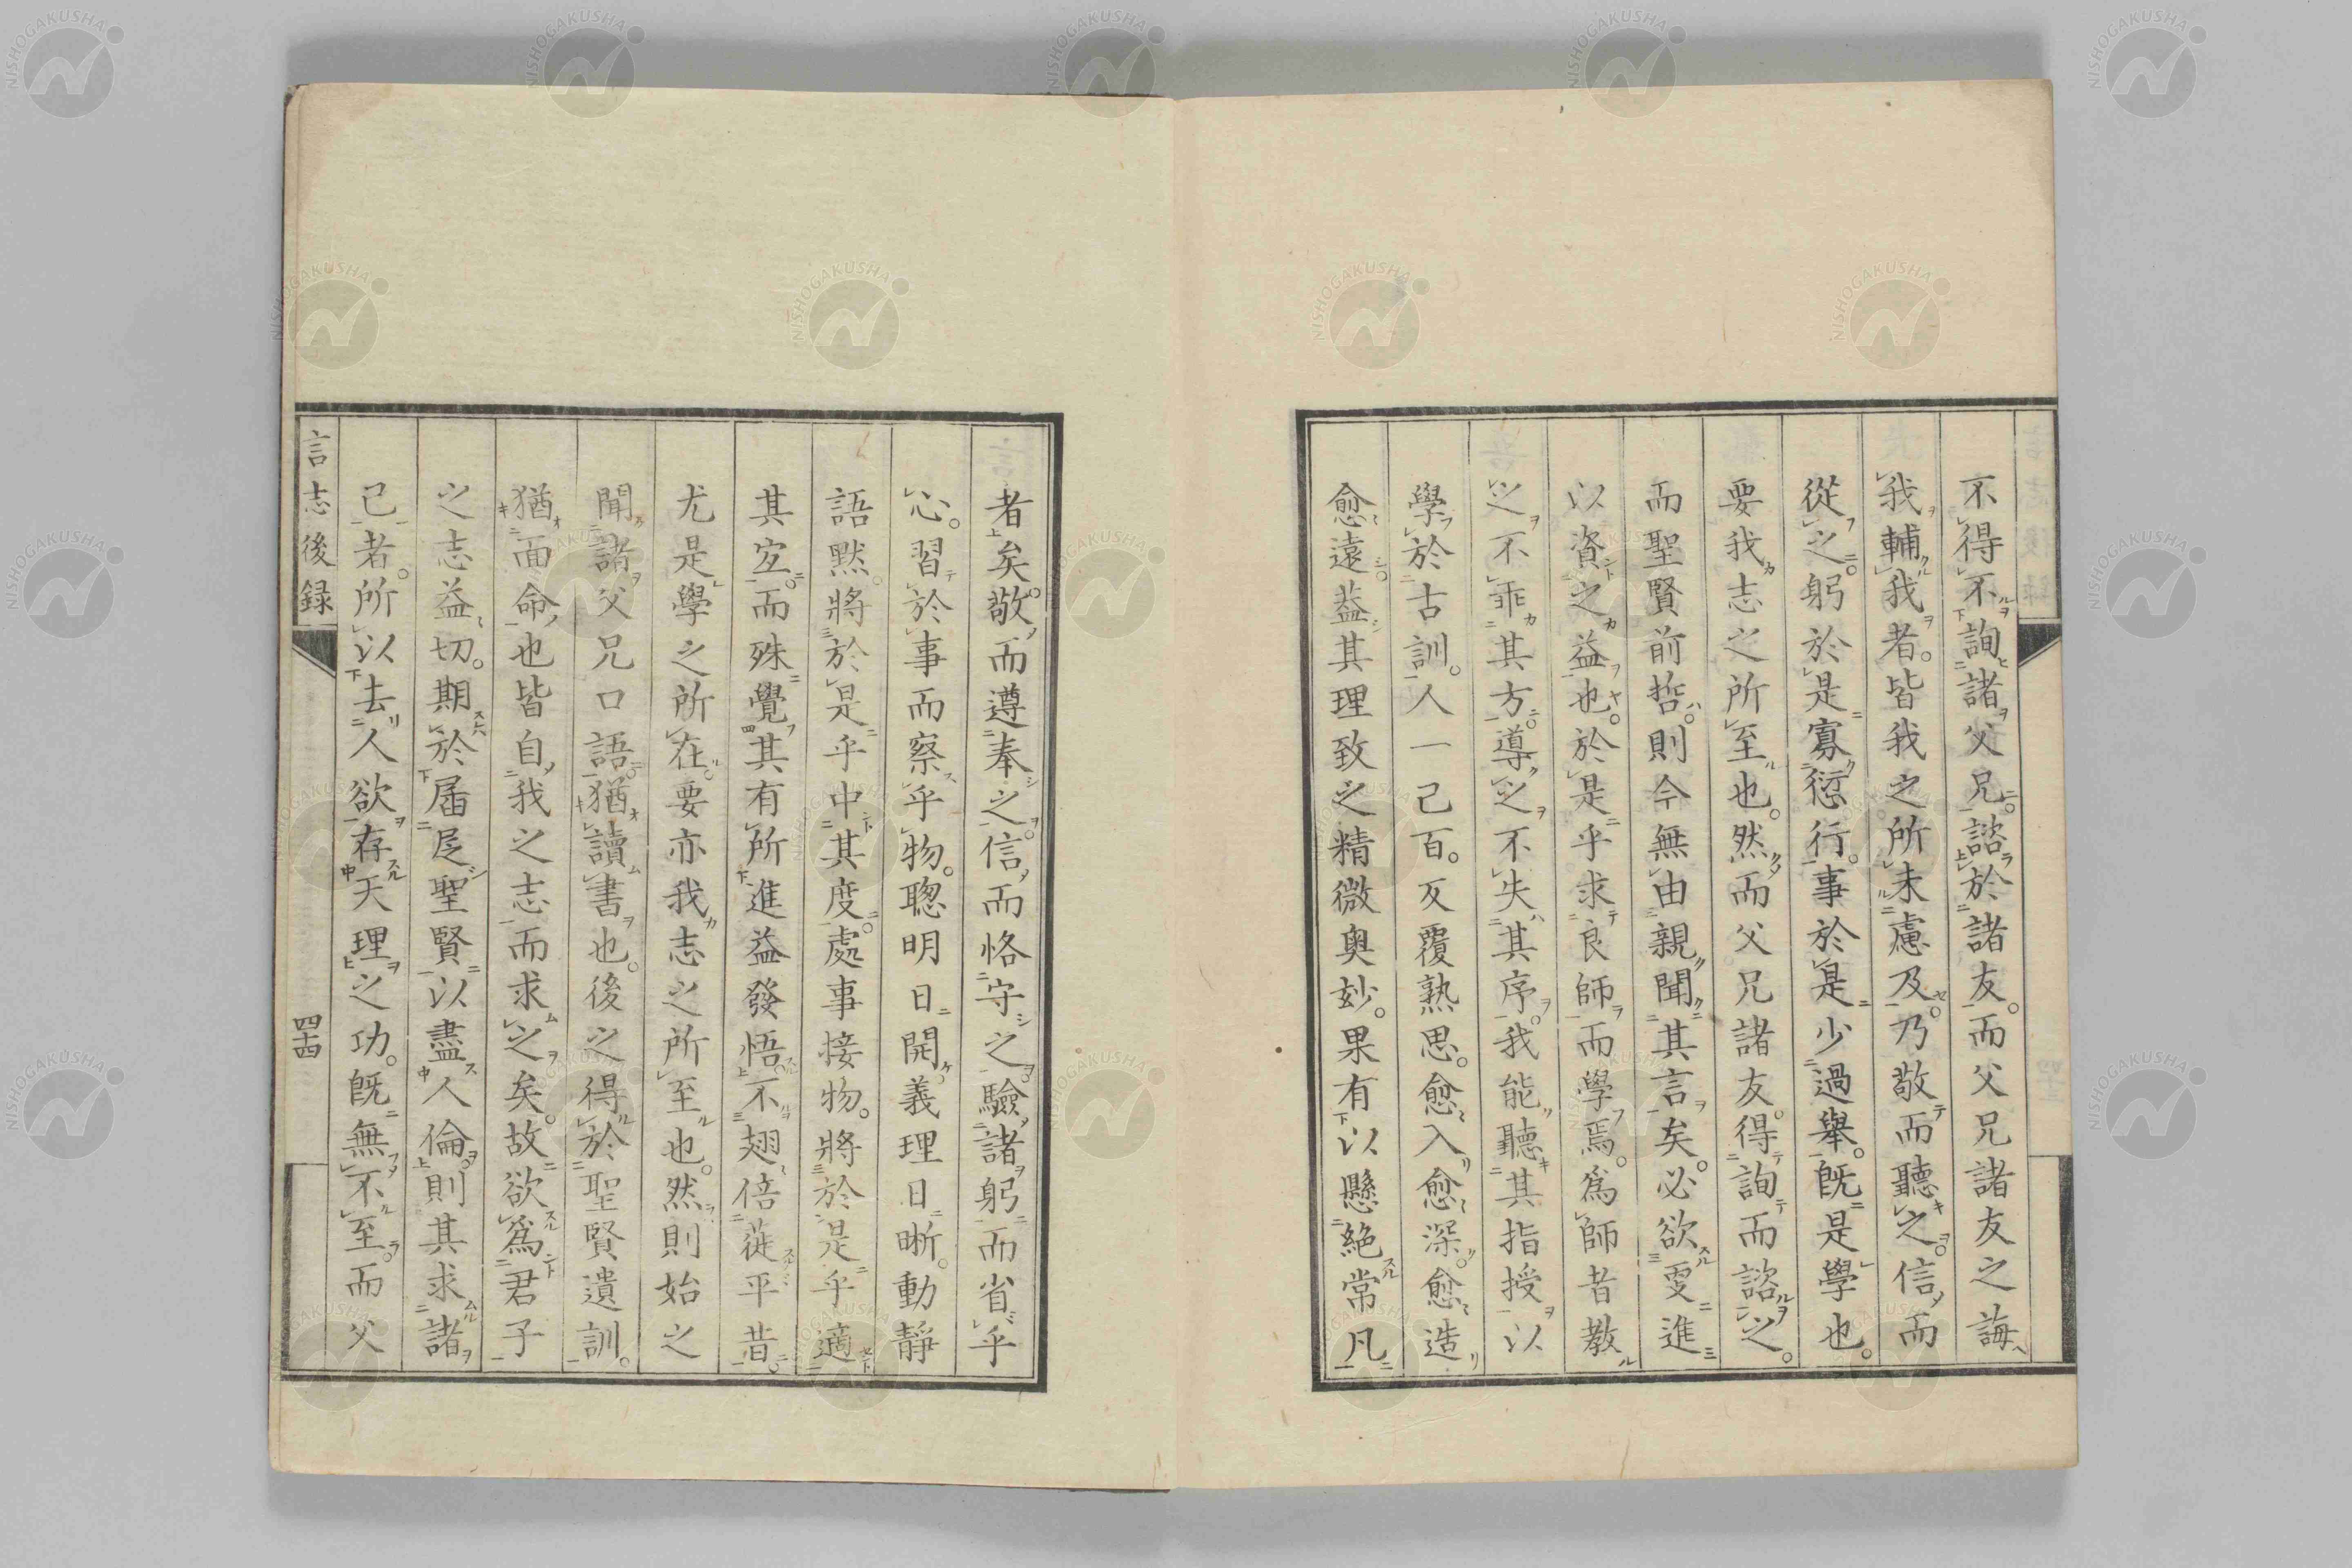 不得不詢諸父兄。諮於諸友。而父兄諸友之誨
我輔我者。皆我之所未慮及。乃敬而聽之。信而
從之。躬於是寡愆行。事於是少過擧。旣是學也。
要我志之所至也。然而父兄諸友。得詢而諮之。
而聖賢前哲。則今無由親聞其言矣。必欲更進
以資之益也。於是乎求良師而學焉。爲師者教
之不乖其方。導之不失其序。我能聽其指授。以
學於古訓。人一己百。反覆熟思。愈入愈深。愈造
愈遠。益其理致之精微奥妙。果有以懸絶常凡
者矣。敬而遵奉之。信而恪守之。驗諸躬而省乎
心。習於事而察乎物。聰明日開。義理日晰。動靜
語默。將於是乎中其度。處事接物。將於是乎適
其宜。而殊覺其有所進益發悟。不翅倍蓰平昔。
尤是學之所在。要亦我志之所至也。然則始之
聞諸父兄口語。猶讀書也。後之得於聖賢遺訓。
猶面命也。皆自我之志而求之矣。故欲爲君子
之志益切。期於屆㞐聖賢。以盡人倫。則其求諸
己者。所以去人欲存天理之功。旣無不至。而父
言志後録
四十四
NISHOGAKUSHA